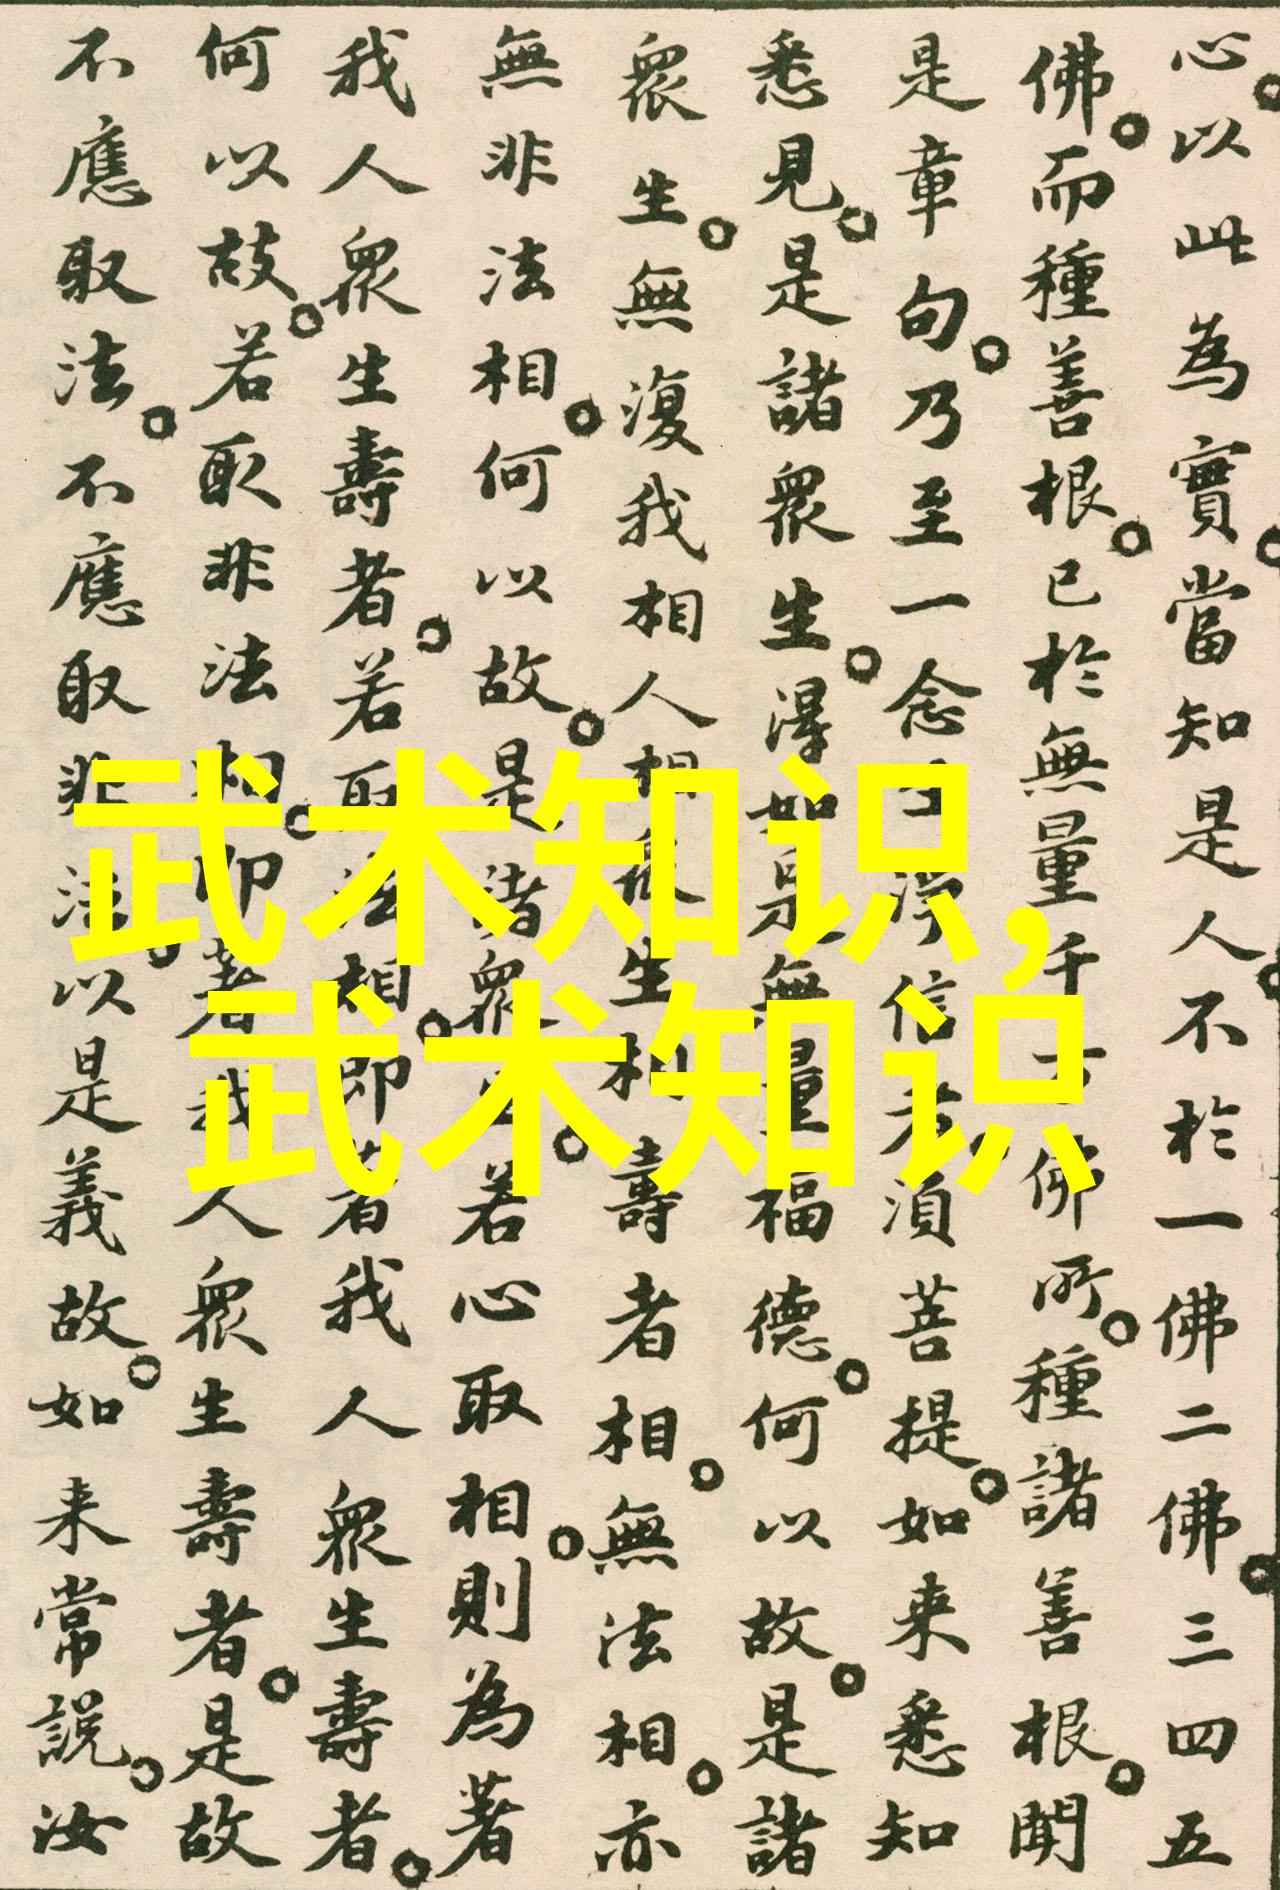 心。以此為實。當知是人。不於一佛二佛。三四五
佛。而種善根。已於無量千万佛所。種諸善根。聞
是章句。乃至一念生淨信者。須菩提。如来悉知
悉見。是諸眾生。得如是無量福德。何以故。是諸
眾生。無復我相人相眾生相壽者相。無法相。亦
無非法相。何以故。是諸眾生。若心取相。則為著
我人眾生壽者。若取法相。即著我人眾生壽者。
何以故。若取非法相。即著我人眾生壽者。是故
不應取法。不應取非法。以是義故。如来常說。汝
武术知识,
武术知识